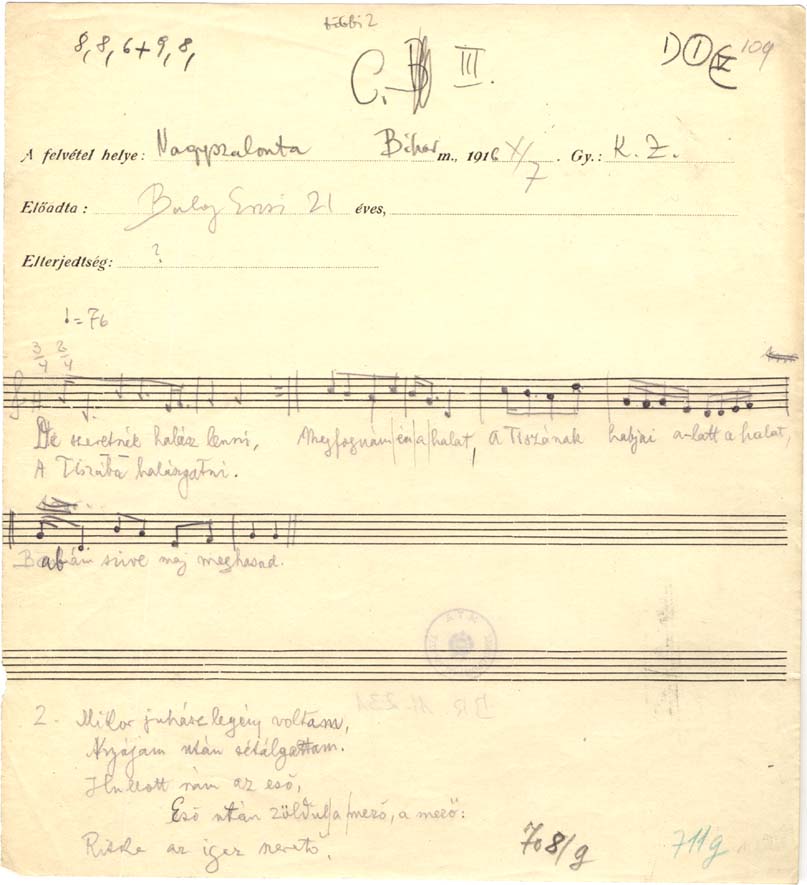 többi 2
8, 8, 6+9, 8,
C. III.
109
A felvétel helye: Nagyszalonta Bihar m., 1916 X/7. Gy.: K. Z.
Előadta: Balog Erzsi 21 éves,
Elterjedtség: ?
♩ = 76
3/4 2/4
De szeretnék halász lenni, Megfognám én a halat, A Tiszának habjai a-latt a halat,
A Tiszába halászgatni.
Babám szive maj meghasad.
2. Mikor juhászlegény voltam,
Nyájam után sétálgattam.
Hullott rám az eső,
Eső után zöldul a mező, a mező:
Ritka az igaz szerető.
708/g
711g